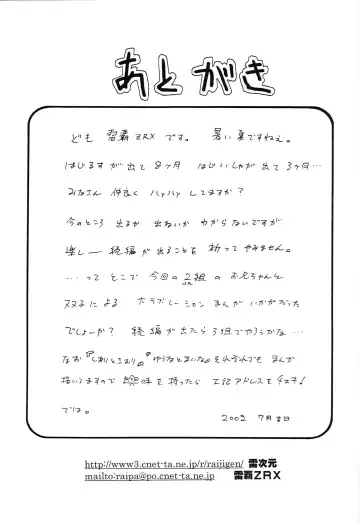 あとがき
ども 雷覇ZRX です。 暑い夏ですねぇ。
はじるすが出て8ヶ月 はじいしゃが出て3ヶ月…
みなさん 仲良く ハァハァ してますか?
今のところ 出るか 出ないか わからないですが
楽しー 続編が出ることを 祈ってやみません。
…って とこで 今回の2組の お兄ちゃんと
双子による コラボレーション まんが いかがだった
でしょーか? 続編が出たら 3組でやろうかな…
なお 『しおりとさおり』『ゆうなとまいな』 それぞれでも まんが
描いてますので 興味を持ったら 下記アドレスを チェキ!
では。 2002 7月 吉日
http://www3.cnet-ta.ne.jp/r/raijigen/ 雷次元
mailto:raipa@po.cnet-ta.ne.jp 雷覇ZRX